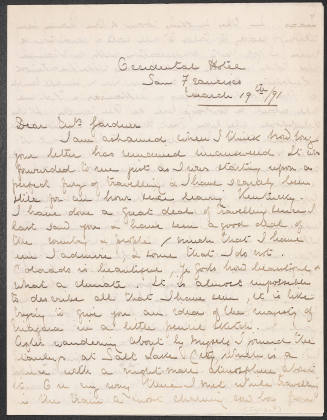 Occidental Hotel
San Francisco
March 19th/91
Dear Mrs Gardner
I am ashamed when I think how long
your letter has remained unanswered. It was
forwarded to me just as I was starting upon a
perfect of travelling & I have scarcely been
still for an hour since leaving Kentucky.
I have done a great deal of travelling since I
last saw you & have seen a good deal of
the country & people / much that I have
seen I admire, & some that I do not.
Colorado is beautiful, ye gods how beautiful &
what a climate. It is almost impossible
to describe all that I have seen, it is like
trying to give you an idea of the majesty of
Niagara in a little pencil sketch!
After wandering about by myself & round the
at Salt Lake City, which is a
with a night-mare atmosphere about
it. On my way there I met while travelling
in the train a most charming